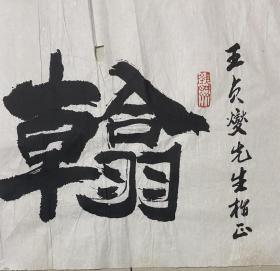 王贞燮先生指正
翰